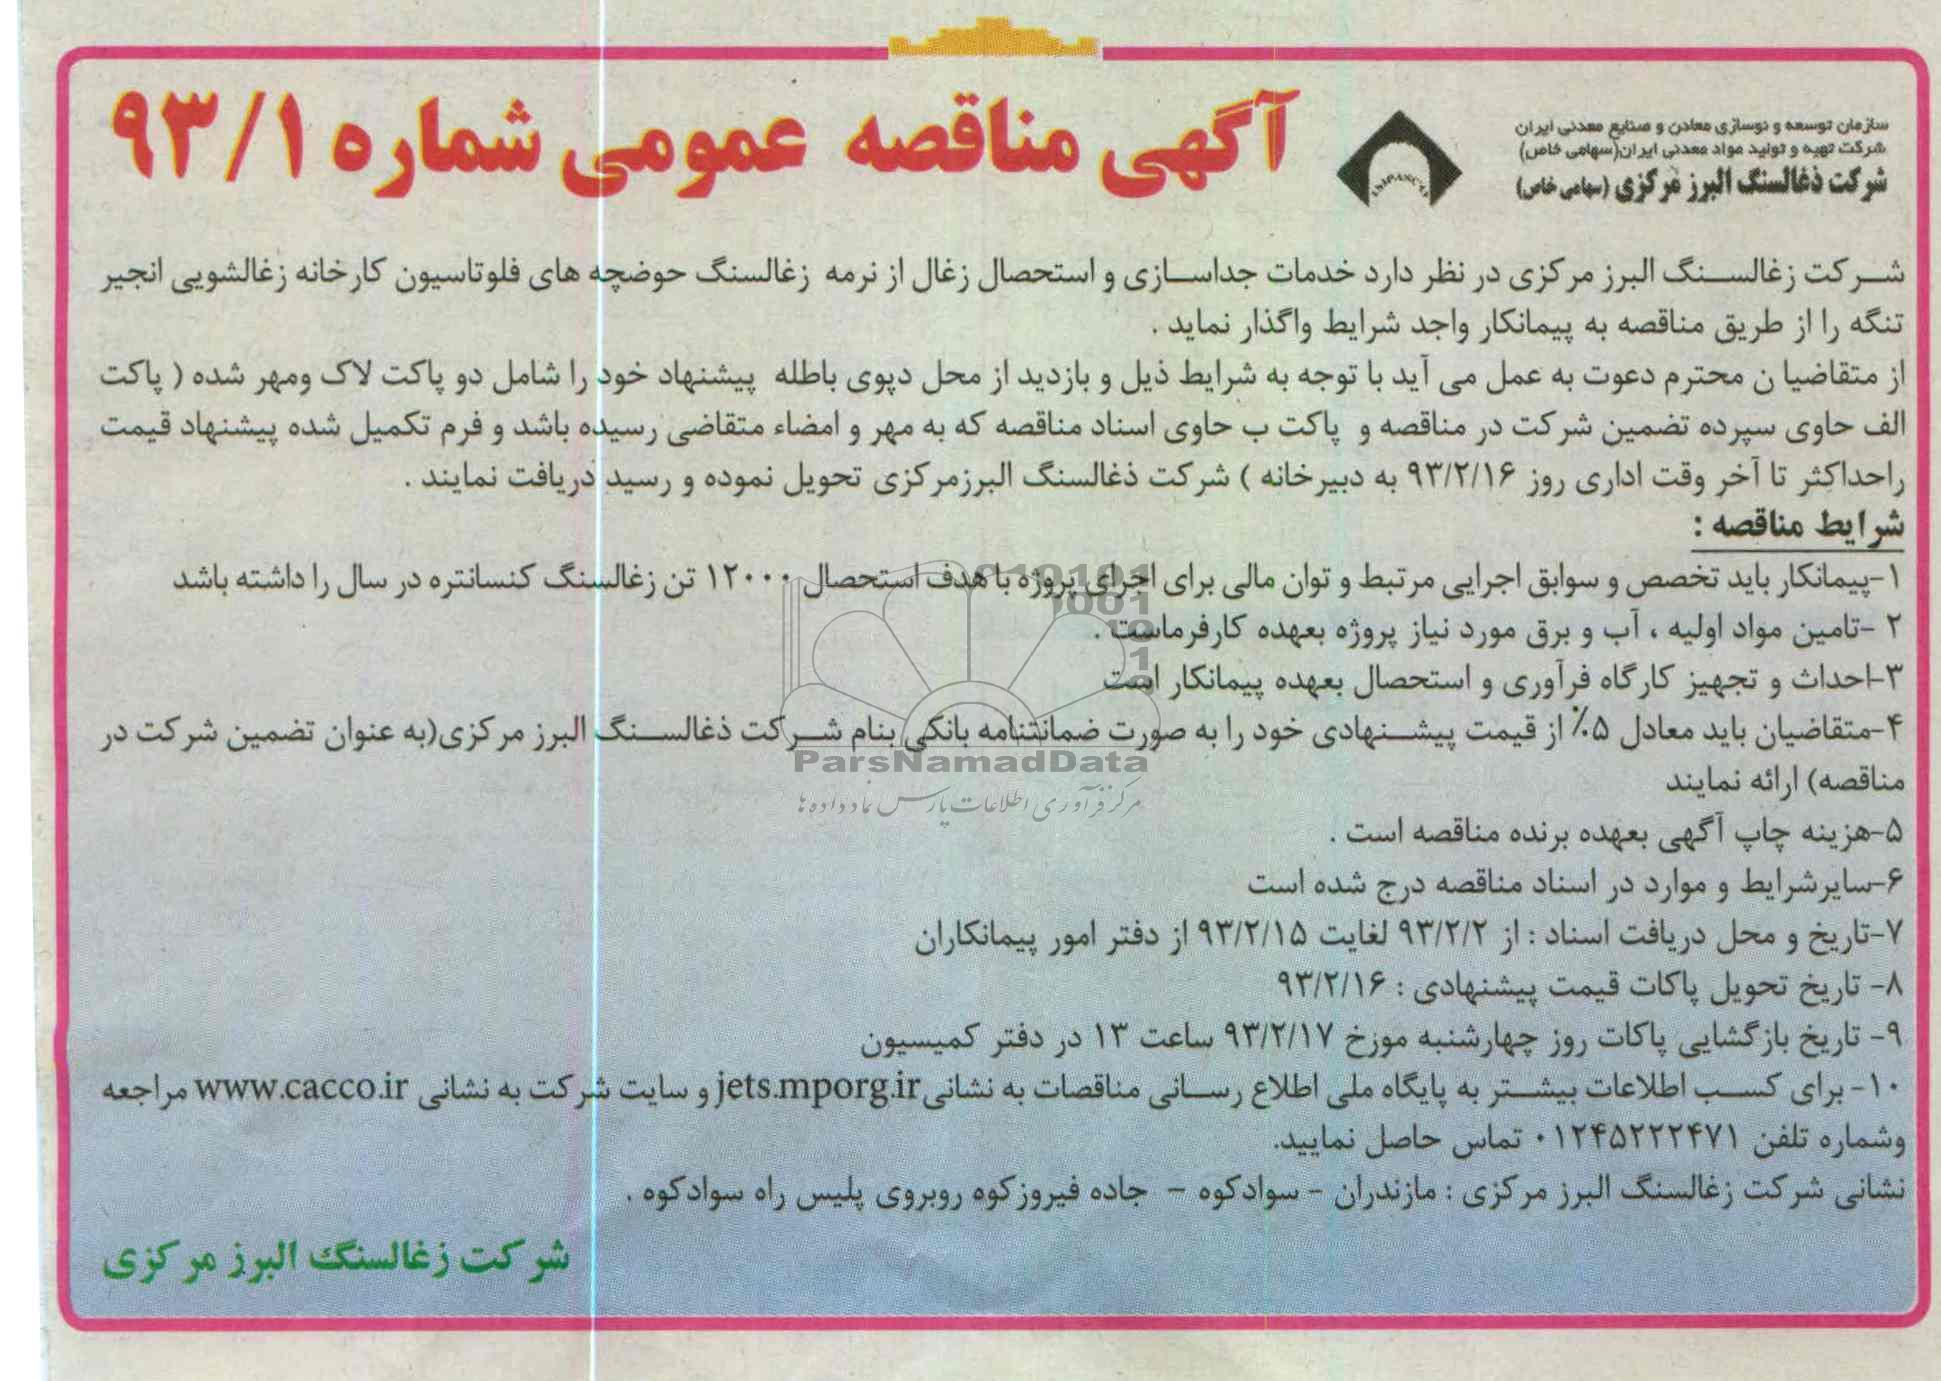 سازمان توسعه و نوسازی معادن و صنایع معدنی ایران
شرکت تهیه و تولید مواد معدنی ایران(سهامی خاص)
شرکت ذغالسنگ البرز مرکزی (سهامی خاص)
آگهی مناقصه عمومی شماره ۹۳/۱
شرکت زغالسنگ البرز مرکزی در نظر دارد خدمات جداسازی و استحصال زغال از نرمه زغالسنگ حوضچه های فلوتاسیون کارخانه زغالشویی انجیر
تنگه را از طریق مناقصه به پیمانکار واجد شرایط واگذار نماید .
از متقاضیا ن محترم دعوت به عمل می آید با توجه به شرایط ذیل و بازدید از محل دپوی باطله پیشنهاد خود را شامل دو پاکت لاک ومهر شده ( پاکت
الف حاوی سپرده تضمین شرکت در مناقصه و پاکت ب حاوی اسناد مناقصه که به مهر و امضاء متقاضی رسیده باشد و فرم تکمیل شده پیشنهاد قیمت
راحداکثر تا آخر وقت اداری روز ۹۳/۲/۱۶ به دبیرخانه ) شرکت ذغالسنگ البرزمرکزی تحویل نموده و رسید دریافت نمایند .
شرایط مناقصه :
۱-پیمانکار باید تخصص و سوابق اجرایی مرتبط و توان مالی برای اجرای پروژه با هدف استحصال ۱۲۰۰۰ تن زغالسنگ کنسانتره در سال را داشته باشد
۲ -تامین مواد اولیه ، آب و برق مورد نیاز پروژه بعهده کارفرماست .
۳-احداث و تجهیز کارگاه فرآوری و استحصال بعهده پیمانکار است
۴-متقاضیان باید معادل ۵٪ از قیمت پیشنهادی خود را به صورت ضمانتنامه بانکی بنام شرکت ذغالسنگ البرز مرکزی(به عنوان تضمین شرکت در
مناقصه) ارائه نمایند
ParsNamadData
مرکز فرآوری اطلاعات پارس نماد داده ها
۵-هزینه چاپ آگهی بعهده برنده مناقصه است .
۶-سایرشرایط و موارد در اسناد مناقصه درج شده است
۷-تاریخ و محل دریافت اسناد : از ۹۳/۲/۲ لغایت ۹۳/۲/۱۵ از دفتر امور پیمانکاران
۸- تاریخ تحویل پاکات قیمت پیشنهادی : ۹۳/۲/۱۶
۹- تاریخ بازگشایی پاکات روز چهارشنبه موزخ ۹۳/۲/۱۷ ساعت ۱۳ در دفتر کمیسیون
۱۰- برای کسب اطلاعات بیشتر به پایگاه ملی اطلاع رسانی مناقصات به نشانی jets.mporg.ir و سایت شرکت به نشانی www.cacco.ir مراجعه
وشماره تلفن ۰۱۲۴۵۲۲۲۴۷۱ تماس حاصل نمایید.
نشانی شرکت زغالسنگ البرز مرکزی : مازندران - سوادکوه - جاده فیروزکوه روبروی پلیس راه سوادکوه .
شرکت زغالسنگ البرز مرکزی